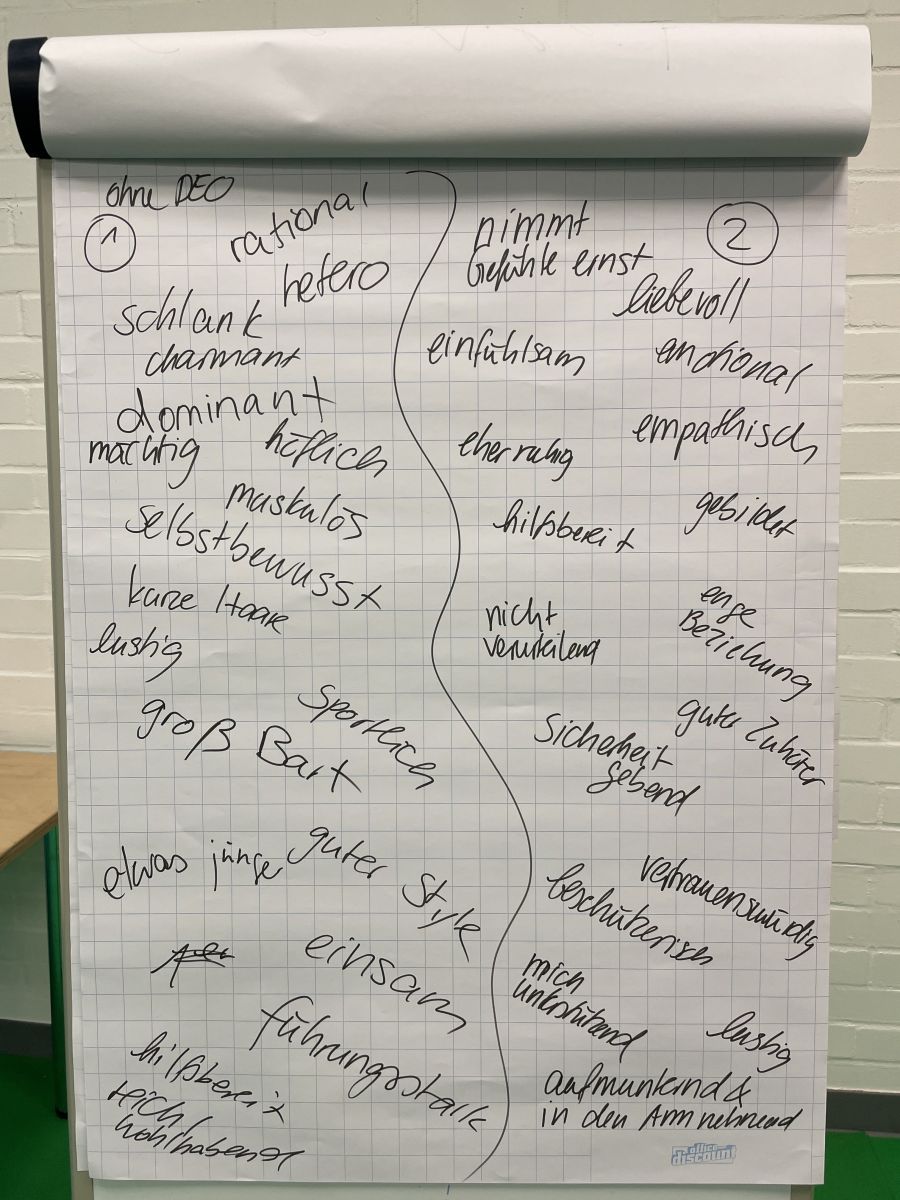 ohne DEO
1
rational
hetero
schlank
charmant
dominant
mächtig
höflich
muskulös
selbstbewusst
kurze Haare
lustig
Sportlich
groß
Bart
etwas jünger
guter Style
einsam
führungsstark
hilfsbereit
reich /
wohlhabend
2
nimmt
Gefühle ernst
liebevoll
einfühlsam
emotional
empathisch
eher ruhig
gebildet
hilfsbereit
enge
Beziehung
nicht
verurteilend
guter Zuhörer
Sicherheit
gebend
vertrauenswürdig
beschützerisch
mich
unterstützend
lustig
aufmunternd &
in den Arm nehmend
office
discount